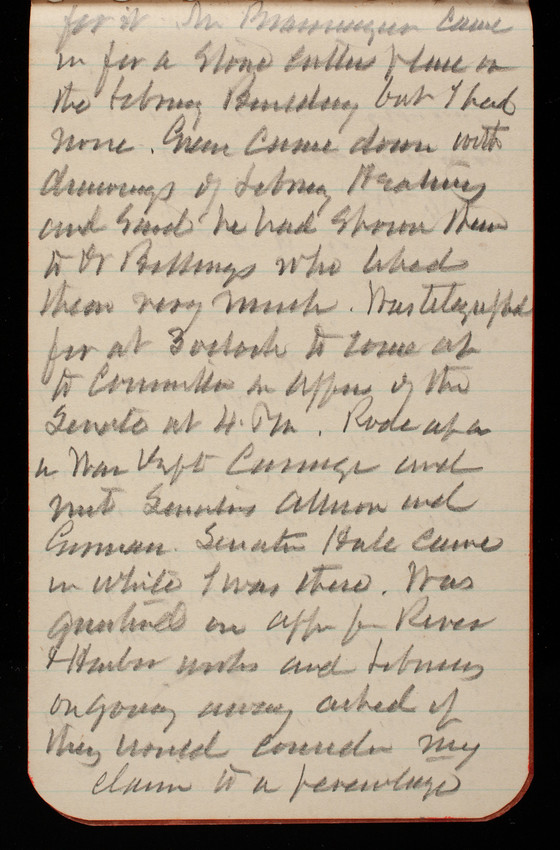 for it Mr came
in for a Stone Cutters place on
the Library Building but I had
none. Green Came down with
drawings of Library Heating
and Said he had Shown them
to Dr Billings who liked
them very much. Was telegraphed
for at 3 oclock to come up
to Committee on Appns of the
Senate at 4 P.M. Rode up in
a War Dept Carriage and
met Senators Allison and
Gorman. Senator Hale came
in while I was there. Was
questioned on appn for River
& Harbor works and Library
On going away asked if
they would consider my
claim to a percentage